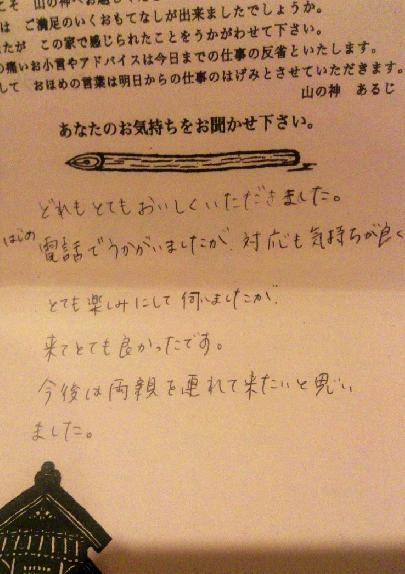 こそ 山の神へお
は ご満足のいくおもてなしが出来ましたでしょうか。
たが この家で感じられたことをうかがわせて下さい。
の痛いお小言やアドバイスは今日までの仕事の反省といたします。
して おほめの言葉は明日からの仕事のはげみとさせていただきます。
山の神 あるじ
あなたのお気持ちをお聞かせ下さい。
どれもとてもおいしくいただきました。
はじめ電話でうかがいましたが、対応も気持ちが良く
とても楽しみにして伺いましたが、
来てとても良かったです。
今後は両親を連れて来たいと思い
ました。